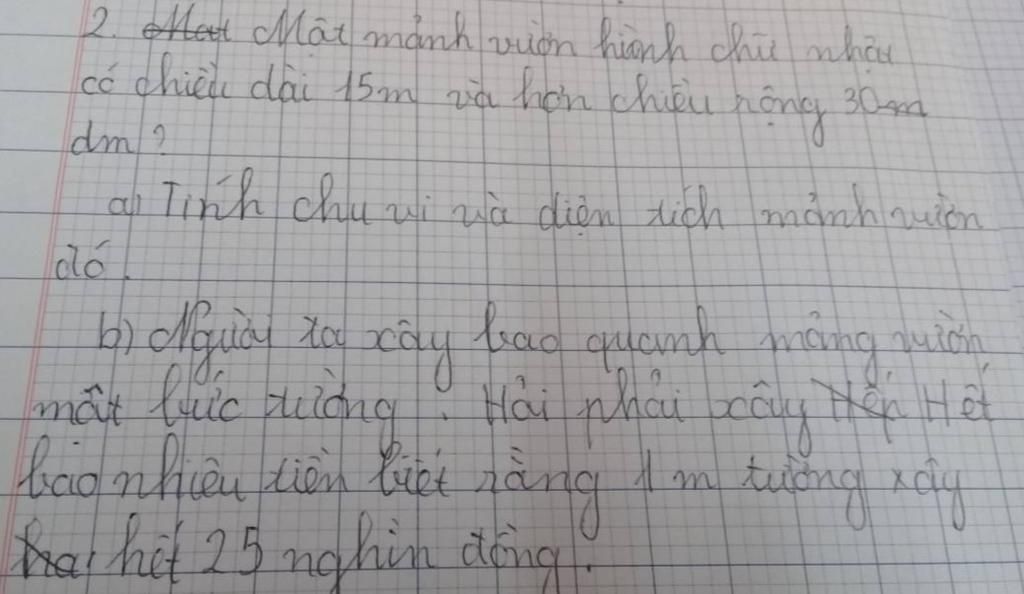 2. Một mảnh vườn hình chữ nhật
có chiều dài 15m và hơn chiều rộng 30
dm?
a) Tính chu vi và diện tích mảnh vườn
đó.
b) Người ta xây bao quanh mảng vườn
một bức tường. Hỏi phải xây Hết
bao nhiêu tiền biết rằng 1 m tường xây
hết 25 nghìn đồng.